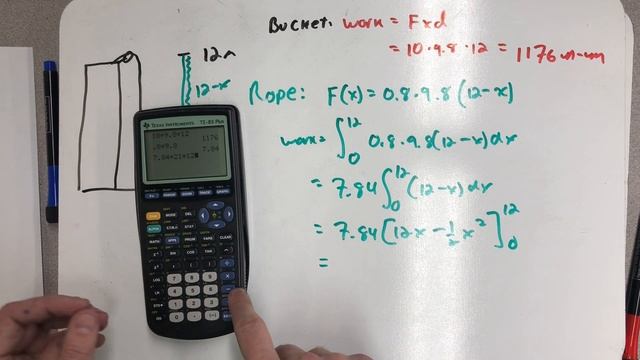 Bucket: work = Fxd
= 10·9.8·12 = 1176
12m
12-x
Rope: F(x) = 0.8·9.8(12-x)
work = ∫₀¹² 0.8·9.8(12-x)dx
= 7.84∫₀¹²(12-x)dx
= 7.84[12x-½x²]₀¹²
=
TEXAS INSTRUMENTS TI-83 Plus
10*9.8*12
1176
.8*9.8
7.84
7.84*21*12